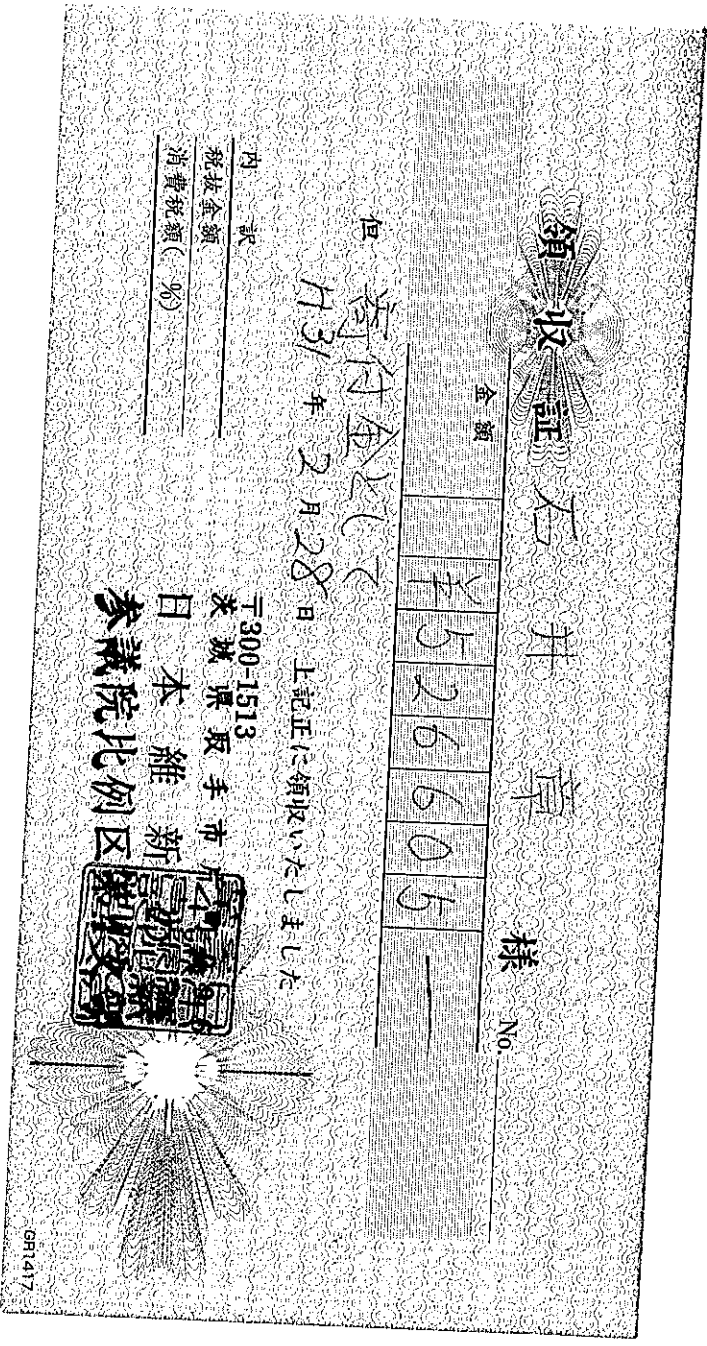 領収証
石井章 様 No.
金額 ¥526605-
但 寄付金として
H31年2月28日 上記正に領収いたしました
内訳
税抜金額
消費税額( %)
〒300-1513
茨城県取手市
日本維新
参議院比例区
GR1417